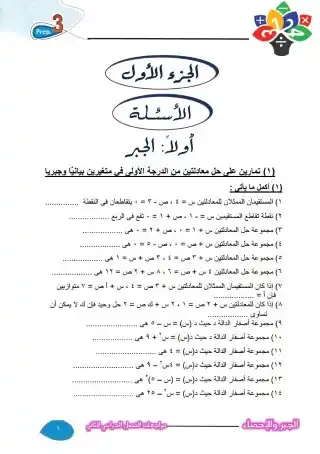 Prep. 3
الجزء الأول
الأسئلة
أولاً: الجبر
(١) تمارين على حل معادلتين من الدرجة الأولى في متغيرين بيانيًا وجبريا
(١) أكمل ما يأتي :
١) المستقيمان الممثلان للمعادلتين س = ٤ ، ص - ٣ = ٠ يتقاطعان في النقطة ...............
٢) نقطة تقاطع المستقيمين س = - ١ ، ص + ١ = ٠ تقع في الربع ..................
٣) مجموعة حل المعادلتين س + ١ = ٠ ، ص + ٢ = ٠ هى ..................
٤) مجموعة حل المعادلتين س + ص = ٠ ، ص - ٥ = ٠ هى ..................
٥) مجموعة حل المعادلتين س + ٣ ص = ٤ ، ٣ ص + س = ١ هى ..................
٦) مجموعة حل المعادلتين ٤ س + ص = ٦ ، ٨ س + ٢ ص = ١٢ هى ..................
٧) إذا كان المستقيمان الممثلان للمعادلتين س + ٣ ص = ٤ ، س + أ ص = ٧ متوازيين
فإن أ = ..................
٨) إذا كان للمعادلتين س + ٢ ص = ١ ، ٢ س + ك ص = ٢ حل وحيد فإن ك لا يمكن أن
تساوى ..................
٩) مجموعة أصفار الدالة د حيث د (س) = س - ٥ هى ......................
١٠) مجموعة أصفار الدالة د حيث د(س) = س٢ + ٩ هى ......................
١١) مجموعة أصفار الدالة حيث د(س) = ٤ هى ......................
١٢) مجموعة أصفار الدالة حيث د(س) = ٤س٢ - ٩ هى ......................
١٣) مجموعة أصفار الدالة حيث د(س) = (س - ٥)٢ هى ......................
١٤) مجموعة أصفار الدالة حيث د(س) = س٢ - ٢٥ هى ......................
الجبر والإحصاء
مراجعات الفصل الدراسي الثاني
١